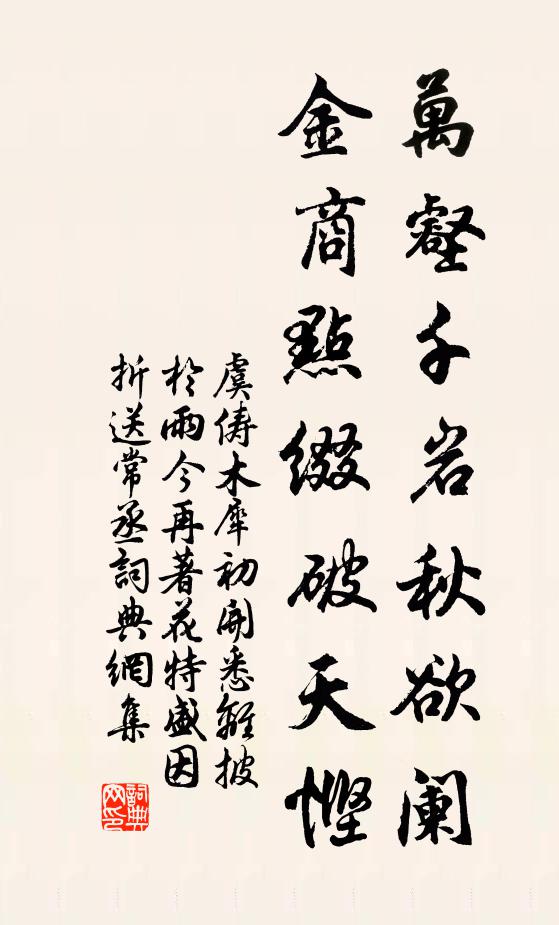 萬壑千岩秋欲阑
金商點綴破天慳
虞俦木犀初開悉離披
於雨今再著花特盛因
折送常丞詞典網集
詞典网印